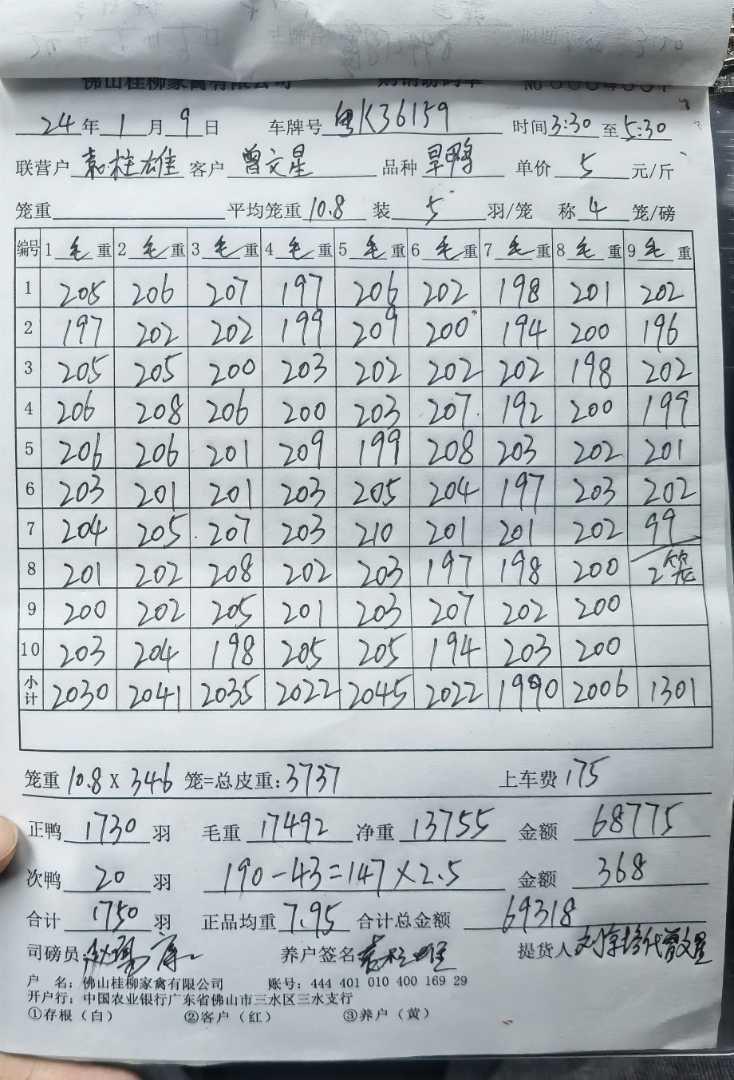 佛山桂柳家禽有限公司 购销磅码单 No
24年1月9日 车牌号 粤K36159 时间3:30至5:30
联营户 袁柱雄 客户 曾文星 品种 旱鸭 单价 5 元/斤
笼重 平均笼重10.8 装 5 羽/笼 称 4 笼/磅
编号 1 毛 重 2 毛 重 3 毛 重 4 毛 重 5 毛 重 6 毛 重 7 毛 重 8 毛 重 9 毛 重
1 205 206 207 197 206 202 198 201 202
2 197 202 202 199 209 200 194 200 196
3 205 205 200 203 202 202 202 198 202
4 206 208 206 200 203 207 192 200 199
5 206 206 201 209 199 208 203 202 201
6 203 201 201 203 205 204 197 203 202
7 204 205 207 203 210 201 201 202 99
8 201 202 208 202 203 197 198 200 2笼
9 200 202 205 201 203 207 202 200
10 203 204 198 205 205 194 203 200
小计 2030 2041 2035 2022 2045 2022 1990 2006 1301
笼重 10.8 X 346 笼=总皮重:3737 上车费 175
正鸭 1730 羽 毛重 17492 净重 13755 金额 68775
次鸭 20 羽 190-43=147×2.5 金额 368
合计 1750 羽 正品均重 7.95 合计总金额 69318
司磅员 养户签名 袁柱雄 提货人 代曾文星
户 名：佛山桂柳家禽有限公司 账号：444 401 010 400 169 29
开户行：中国农业银行广东省佛山市三水区三水支行
①存根（白） ②客户（红） ③养户（黄）